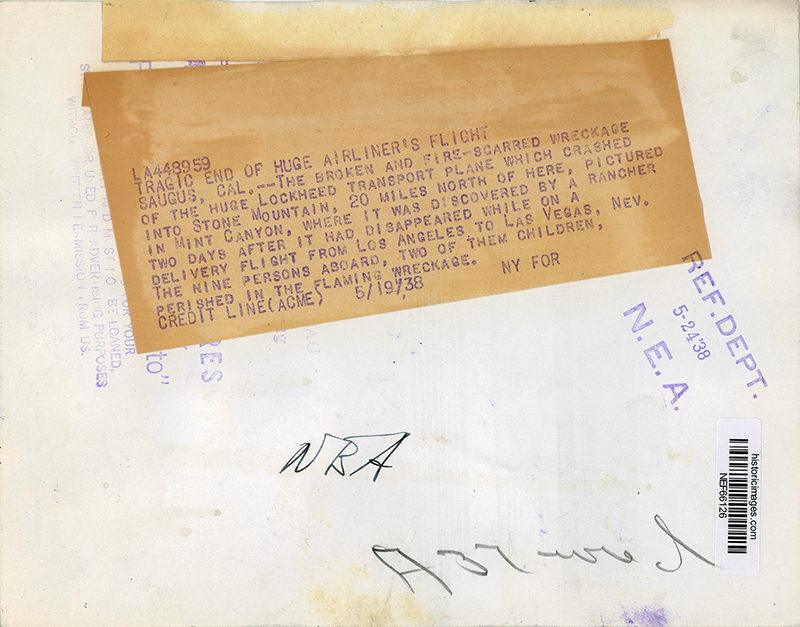 LA448959
TRAGIC END OF HUGE AIRLINER'S FLIGHT
SAUGUS, CAL.--THE BROKEN AND FIRE-SCARRED WRECKAGE
OF THE HUGE LOCKHEED TRANSPORT PLANE WHICH CRASHED
INTO STONE MOUNTAIN, 20 MILES NORTH OF HERE, PICTURED
IN MINT CANYON, WHERE IT WAS DISCOVERED BY A RANCHER
TWO DAYS AFTER IT HAD DISAPPEARED WHILE ON A
DELIVERY FLIGHT FROM LOS ANGELES TO LAS VEGAS, NEV.
THE NINE PERSONS ABOARD, TWO OF THEM CHILDREN,
PERISHED IN THE FLAMING WRECKAGE.
CREDIT LINE(ACME) 5/19/38 NY FOR
REF. DEPT.
5-24'38
N.E.A.
FOR YOUR
BE LOANED,
PURPOSES
FROM US.
to"
RES
NBA
historicimages.com
NEF66126